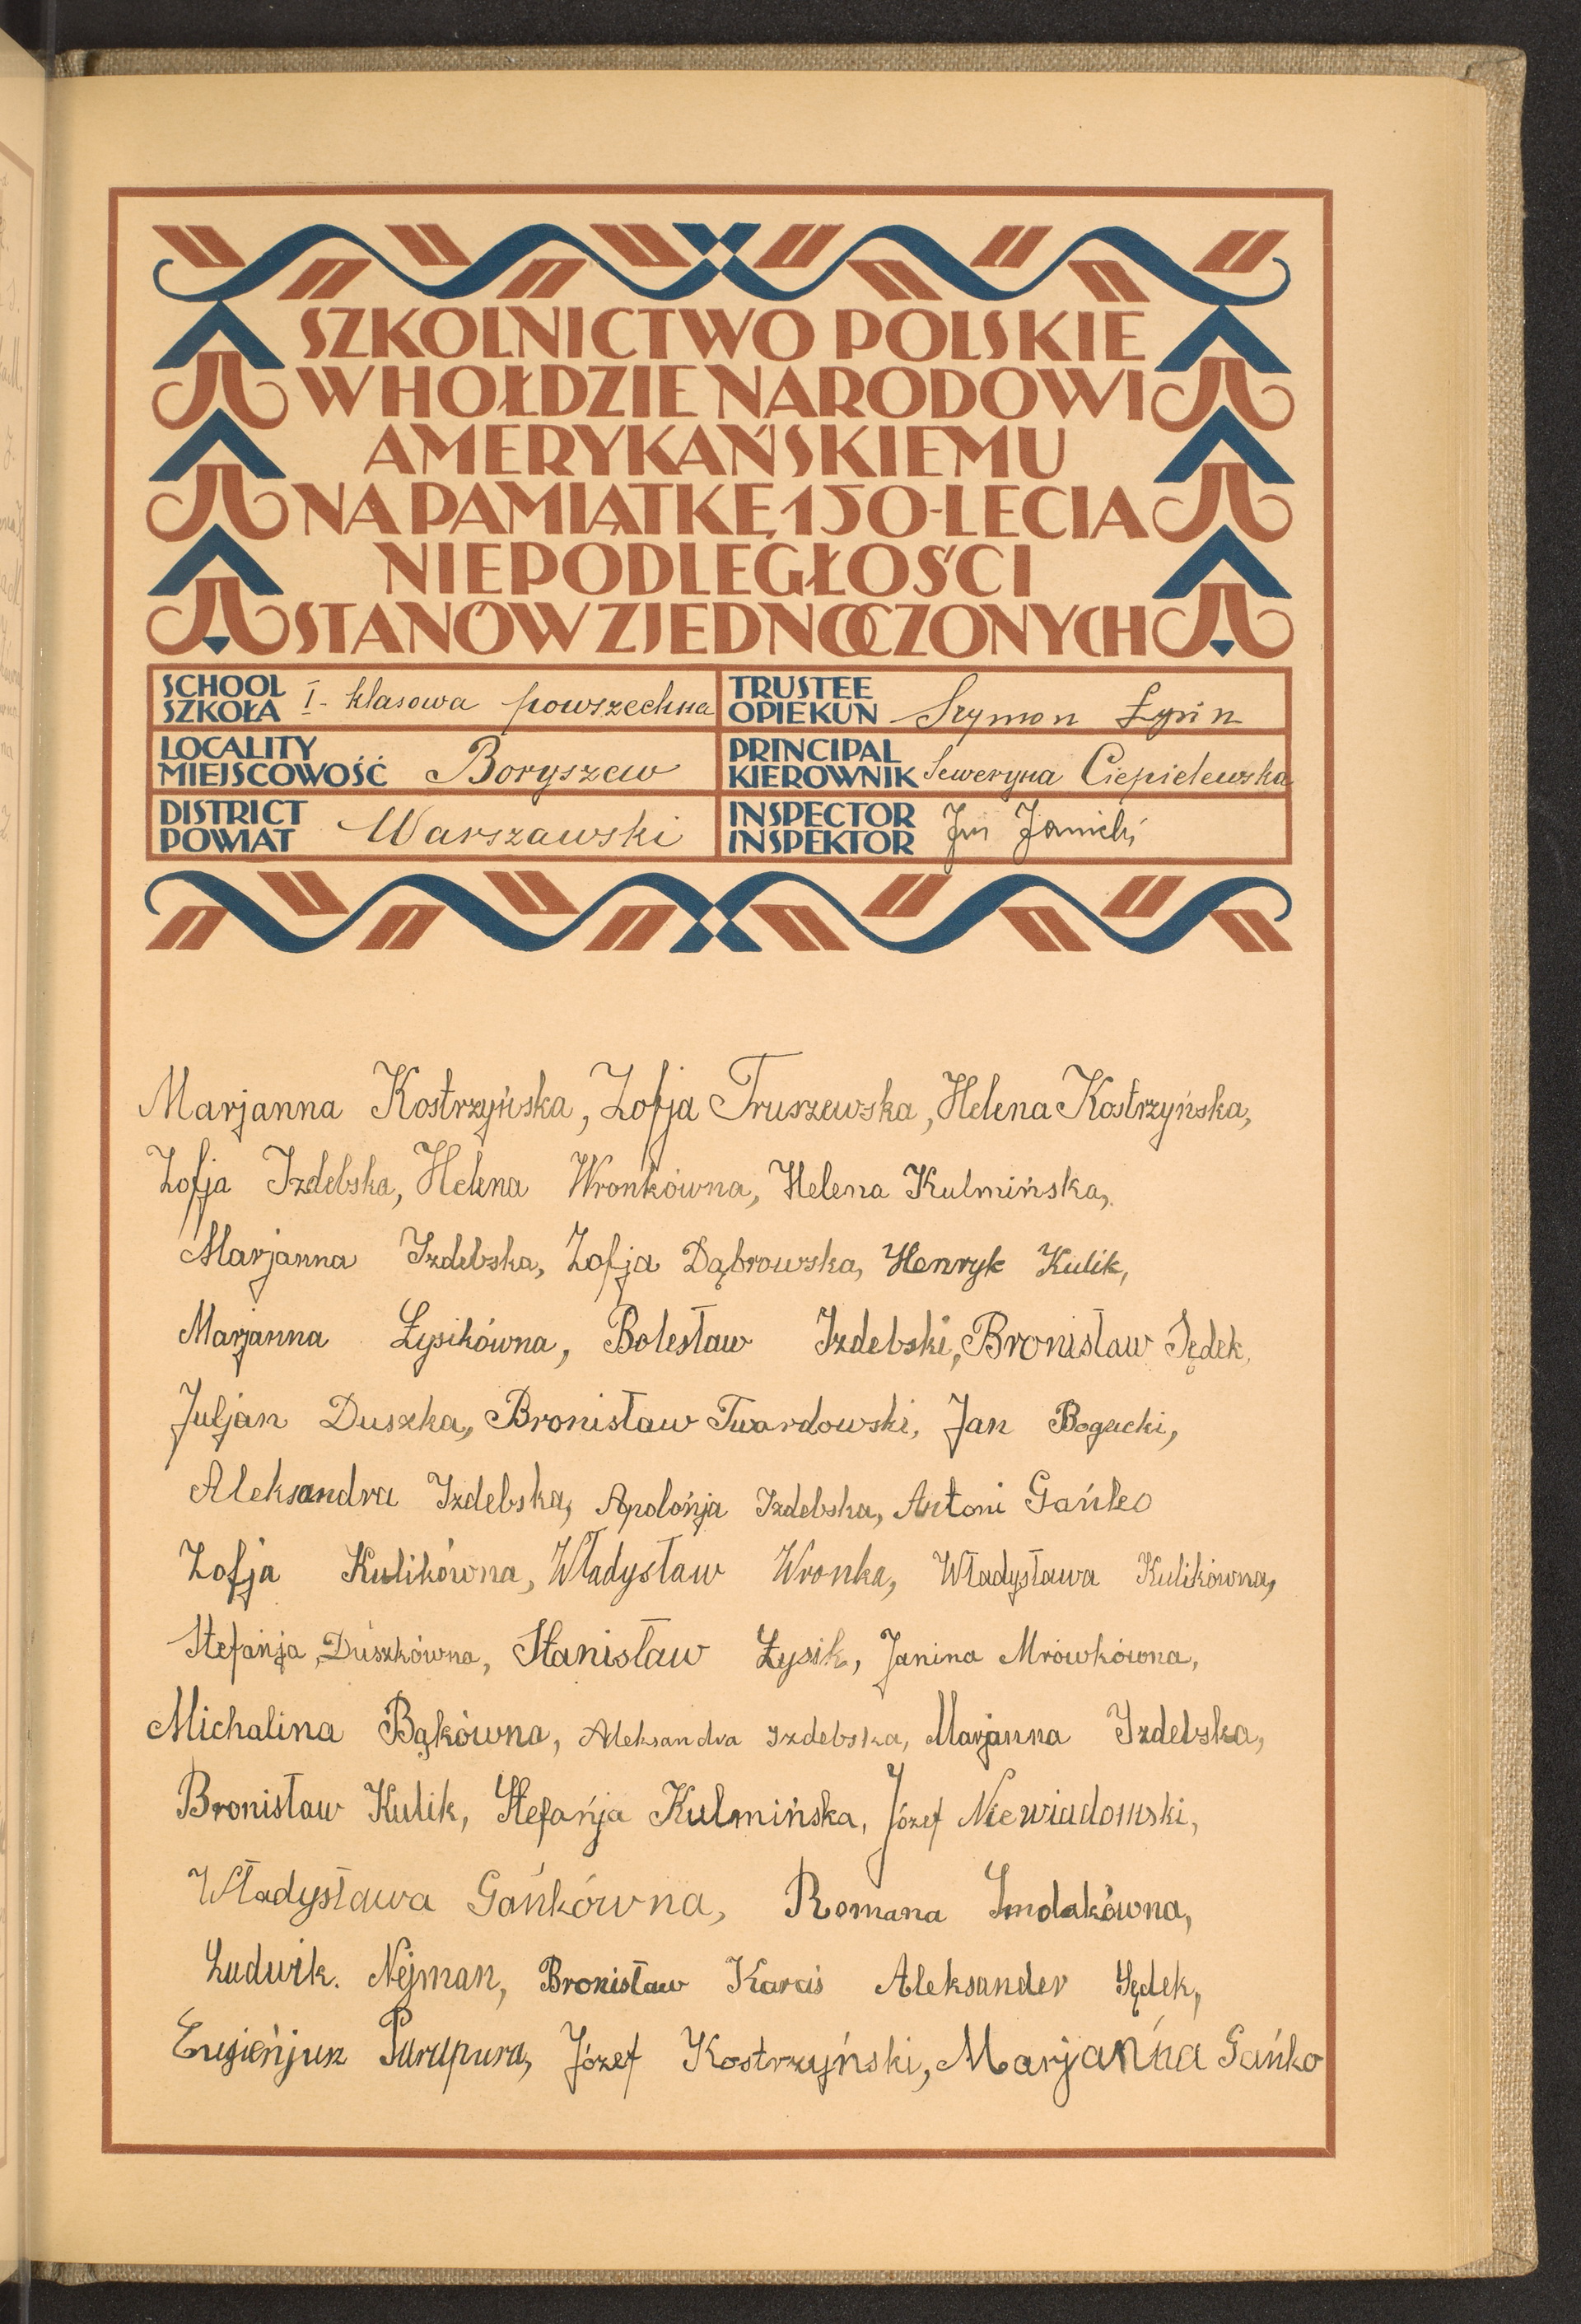 SZKOLNICTWO POLSKIE
W HOŁDZIE NARODOWI
AMERYKAŃSKIEMU
NA PAMIĄTKĘ 150-LECIA
NIEPODLEGŁOŚCI
STANÓW ZJEDNOCZONYCH
SCHOOL
SZKOŁA I- klasowa powszechna
TRUSTEE
OPIEKUN Szymon
LOCALITY
MIEJSCOWOŚĆ Boryszew
PRINCIPAL
KIEROWNIK Seweryna Ciepielewska
DISTRICT
POWIAT Warszawski
INSPECTOR
INSPEKTOR Janicki
Marjanna Kostrzyńska, Zofja Truszewska, Helena Kostrzyńska,
Zofja Izdebska, Helena Wronkówna, Helena Kulmińska,
Marjanna Izdebska, Zofja Dąbrowska, Henryk Kulik,
Marjanna Łysikówna, Bolesław Izdebski, Bronisław Sędek,
Juljan Duszka, Bronisław Twardowski, Jan Bogucki,
Aleksandra Izdebska, Apolońja Izdebska, Antoni Gańko
Zofja Kulikówna, Władysław Wronka, Władysława Kulikówna,
Stefańja Duszkówna, Stanisław Łysik, Janina Mrówkówna,
Michalina Bąkówna, Aleksandra Izdebska, Marjanna Izdebska,
Bronisław Kulik, Stefańja Kulmińska, Józef Niewiadomski,
Władysława Gańkówna, Romana Smolakówna,
Ludwik. Nejman, Bronisław Karaś Aleksander Sędek,
Eugieńjusz Purapura, Józef Kostrzyński, Marjanna Gańko